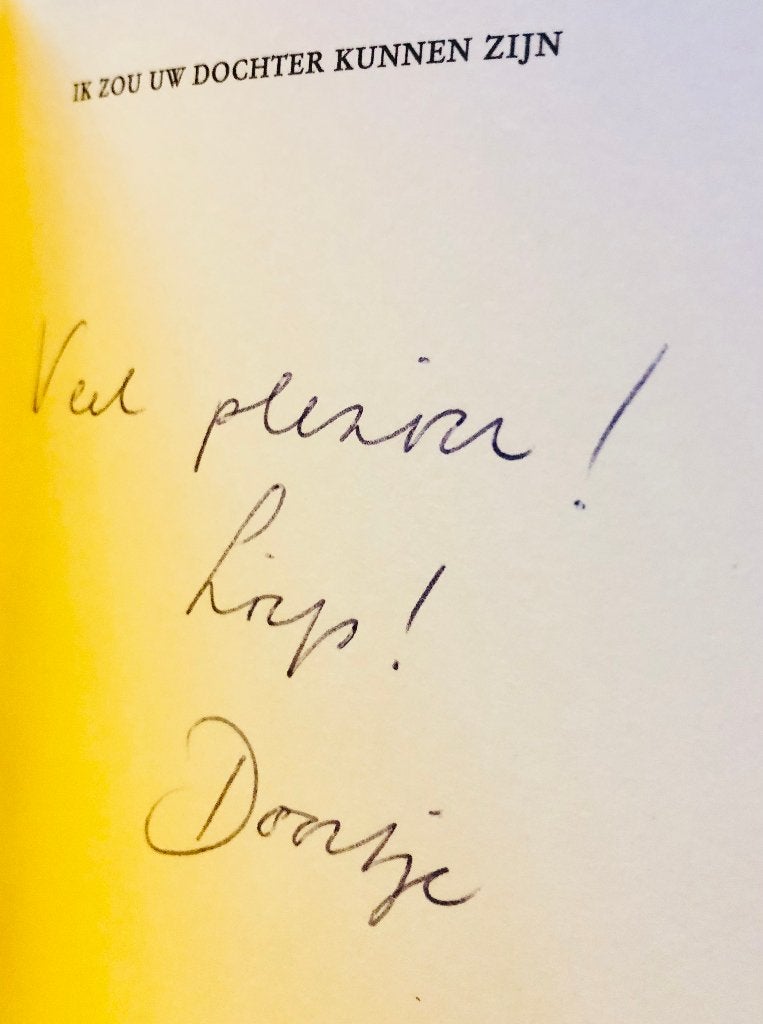 IK ZOU UW DOCHTER KUNNEN ZIJN
Veel plezier!
Liefs!
Doortje